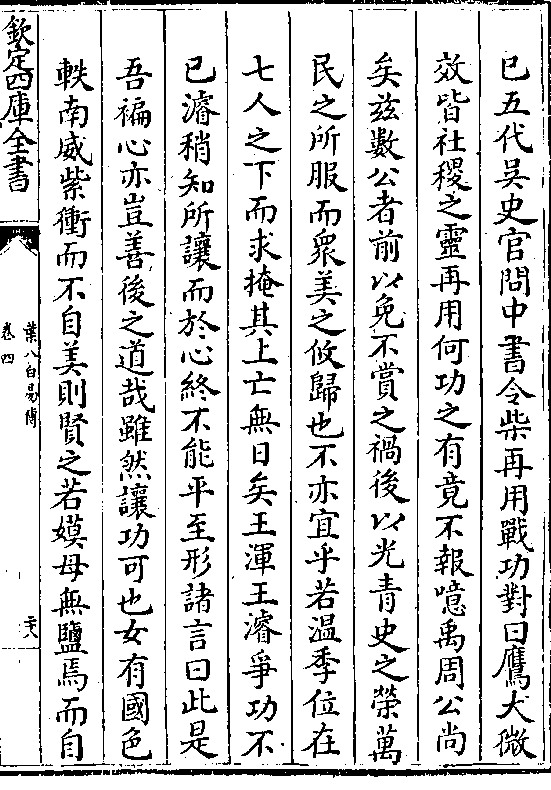 已五代吳史官問中書令柴再用戰功對曰鷹犬微
效皆社稷之靈再用何功之有竟不報噫禹周公尚
矣兹數公者前以免不賞之禍後以光青史之榮萬
民之所服而衆美之攸歸也不亦宜乎若温季位在
七人之下而求掩其上亡無日矣王渾王濬爭功不
已濬稍知所讓而於心終不能平至形諸言曰此是
吾褊心亦豈善後之道哉雖然讓功可也女有國色
軼南威紫衝而不自美則賢之若嫫母無鹽焉而自
欽定四庫全書
葉八白易傳
卷四
二十八